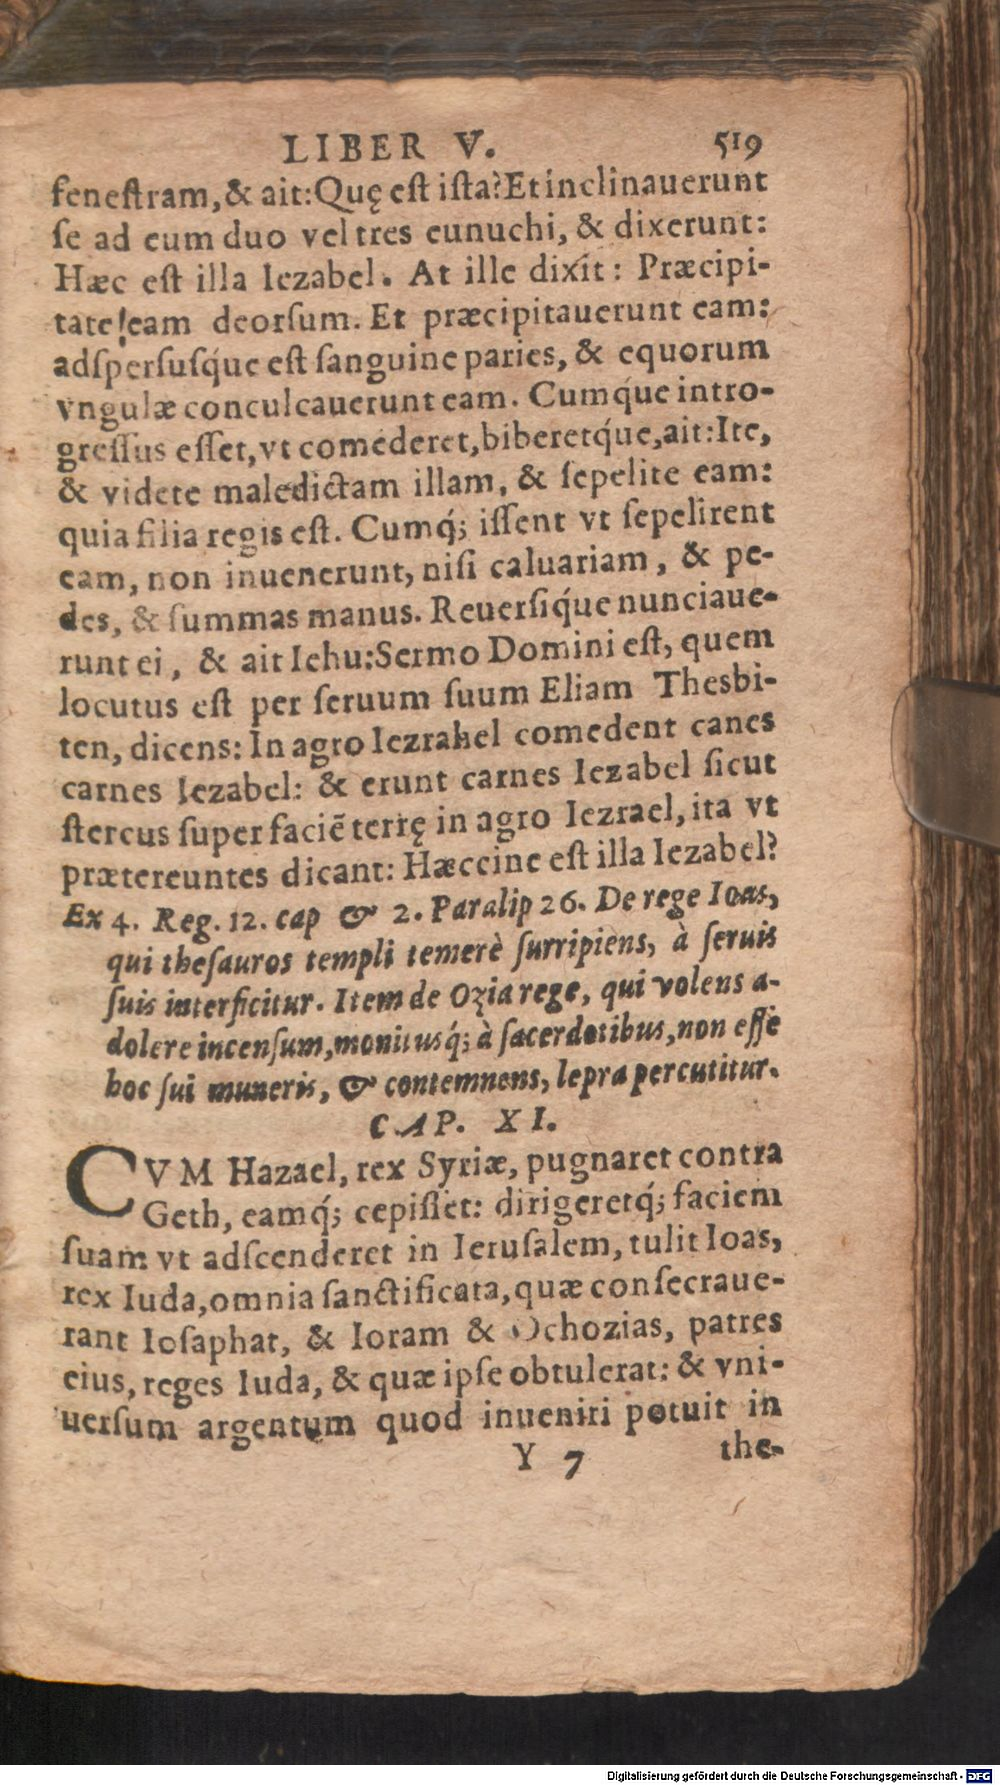 LIBER V. 519
feneſtram, & ait: Quę eſt iſta? Et inclinauerunt
ſe ad eum duo vel tres eunuchi, & dixerunt:
Hæc eſt illa Iezabel. At ille dixit: Præcipi-
tate eam deorſum. Et præcipitauerunt eam:
adſperſuſq́ue eſt ſanguine paries, & equorum
vngulæ conculcauerunt eam. Cumq́ue intro-
greſſus eſſet, vt comederet, biberetq́ue, ait: Ite,
& videte maledictam illam, & ſepelite eam:
quia filia regis eſt. Cumq́; iſſent vt ſepelirent
eam, non inuenerunt, niſi caluariam, & pe-
des, & ſummas manus. Reuerſiq́ue nunciaue-
runt ei, & ait Iehu: Sermo Domini eſt, quem
locutus eſt per ſeruum ſuum Eliam Thesbi-
ten, dicens: In agro Iezrahel comedent canes
carnes Iezabel: & erunt carnes Iezabel ſicut
ſtercus ſuper faciẽ terrę in agro Iezrael, ita vt
prætereuntes dicant: Hæccine eſt illa Iezabel?
Ex 4. Reg. 12. cap & 2. Paralip 26. De rege Ioas,
qui theſauros templi temerè ſurripiens, à ſeruis
ſuis interficitur. Item de Ozia rege, qui volens a-
dolere incenſum, monitusq́; à ſacerdotibus, non eſſe
hoc ſui muneris, & contemnens, lepra percutitur.
CAP. XI.
CVM Hazael, rex Syriæ, pugnaret contra
Geth, eamq́; cepiſſet: dirigeretq́; faciem
ſuam vt adſcenderet in Ieruſalem, tulit Ioas,
rex Iuda, omnia ſanctificata, quæ conſecraue-
rant Ioſaphat, & Ioram & Ochozias, patres
eius, reges Iuda, & quæ ipſe obtulerat: & vni-
uerſum argentum quod inueniri potuit in
Y 7 the-
Digitalisierung gefördert durch die Deutsche Forschungsgemeinschaft - DFG